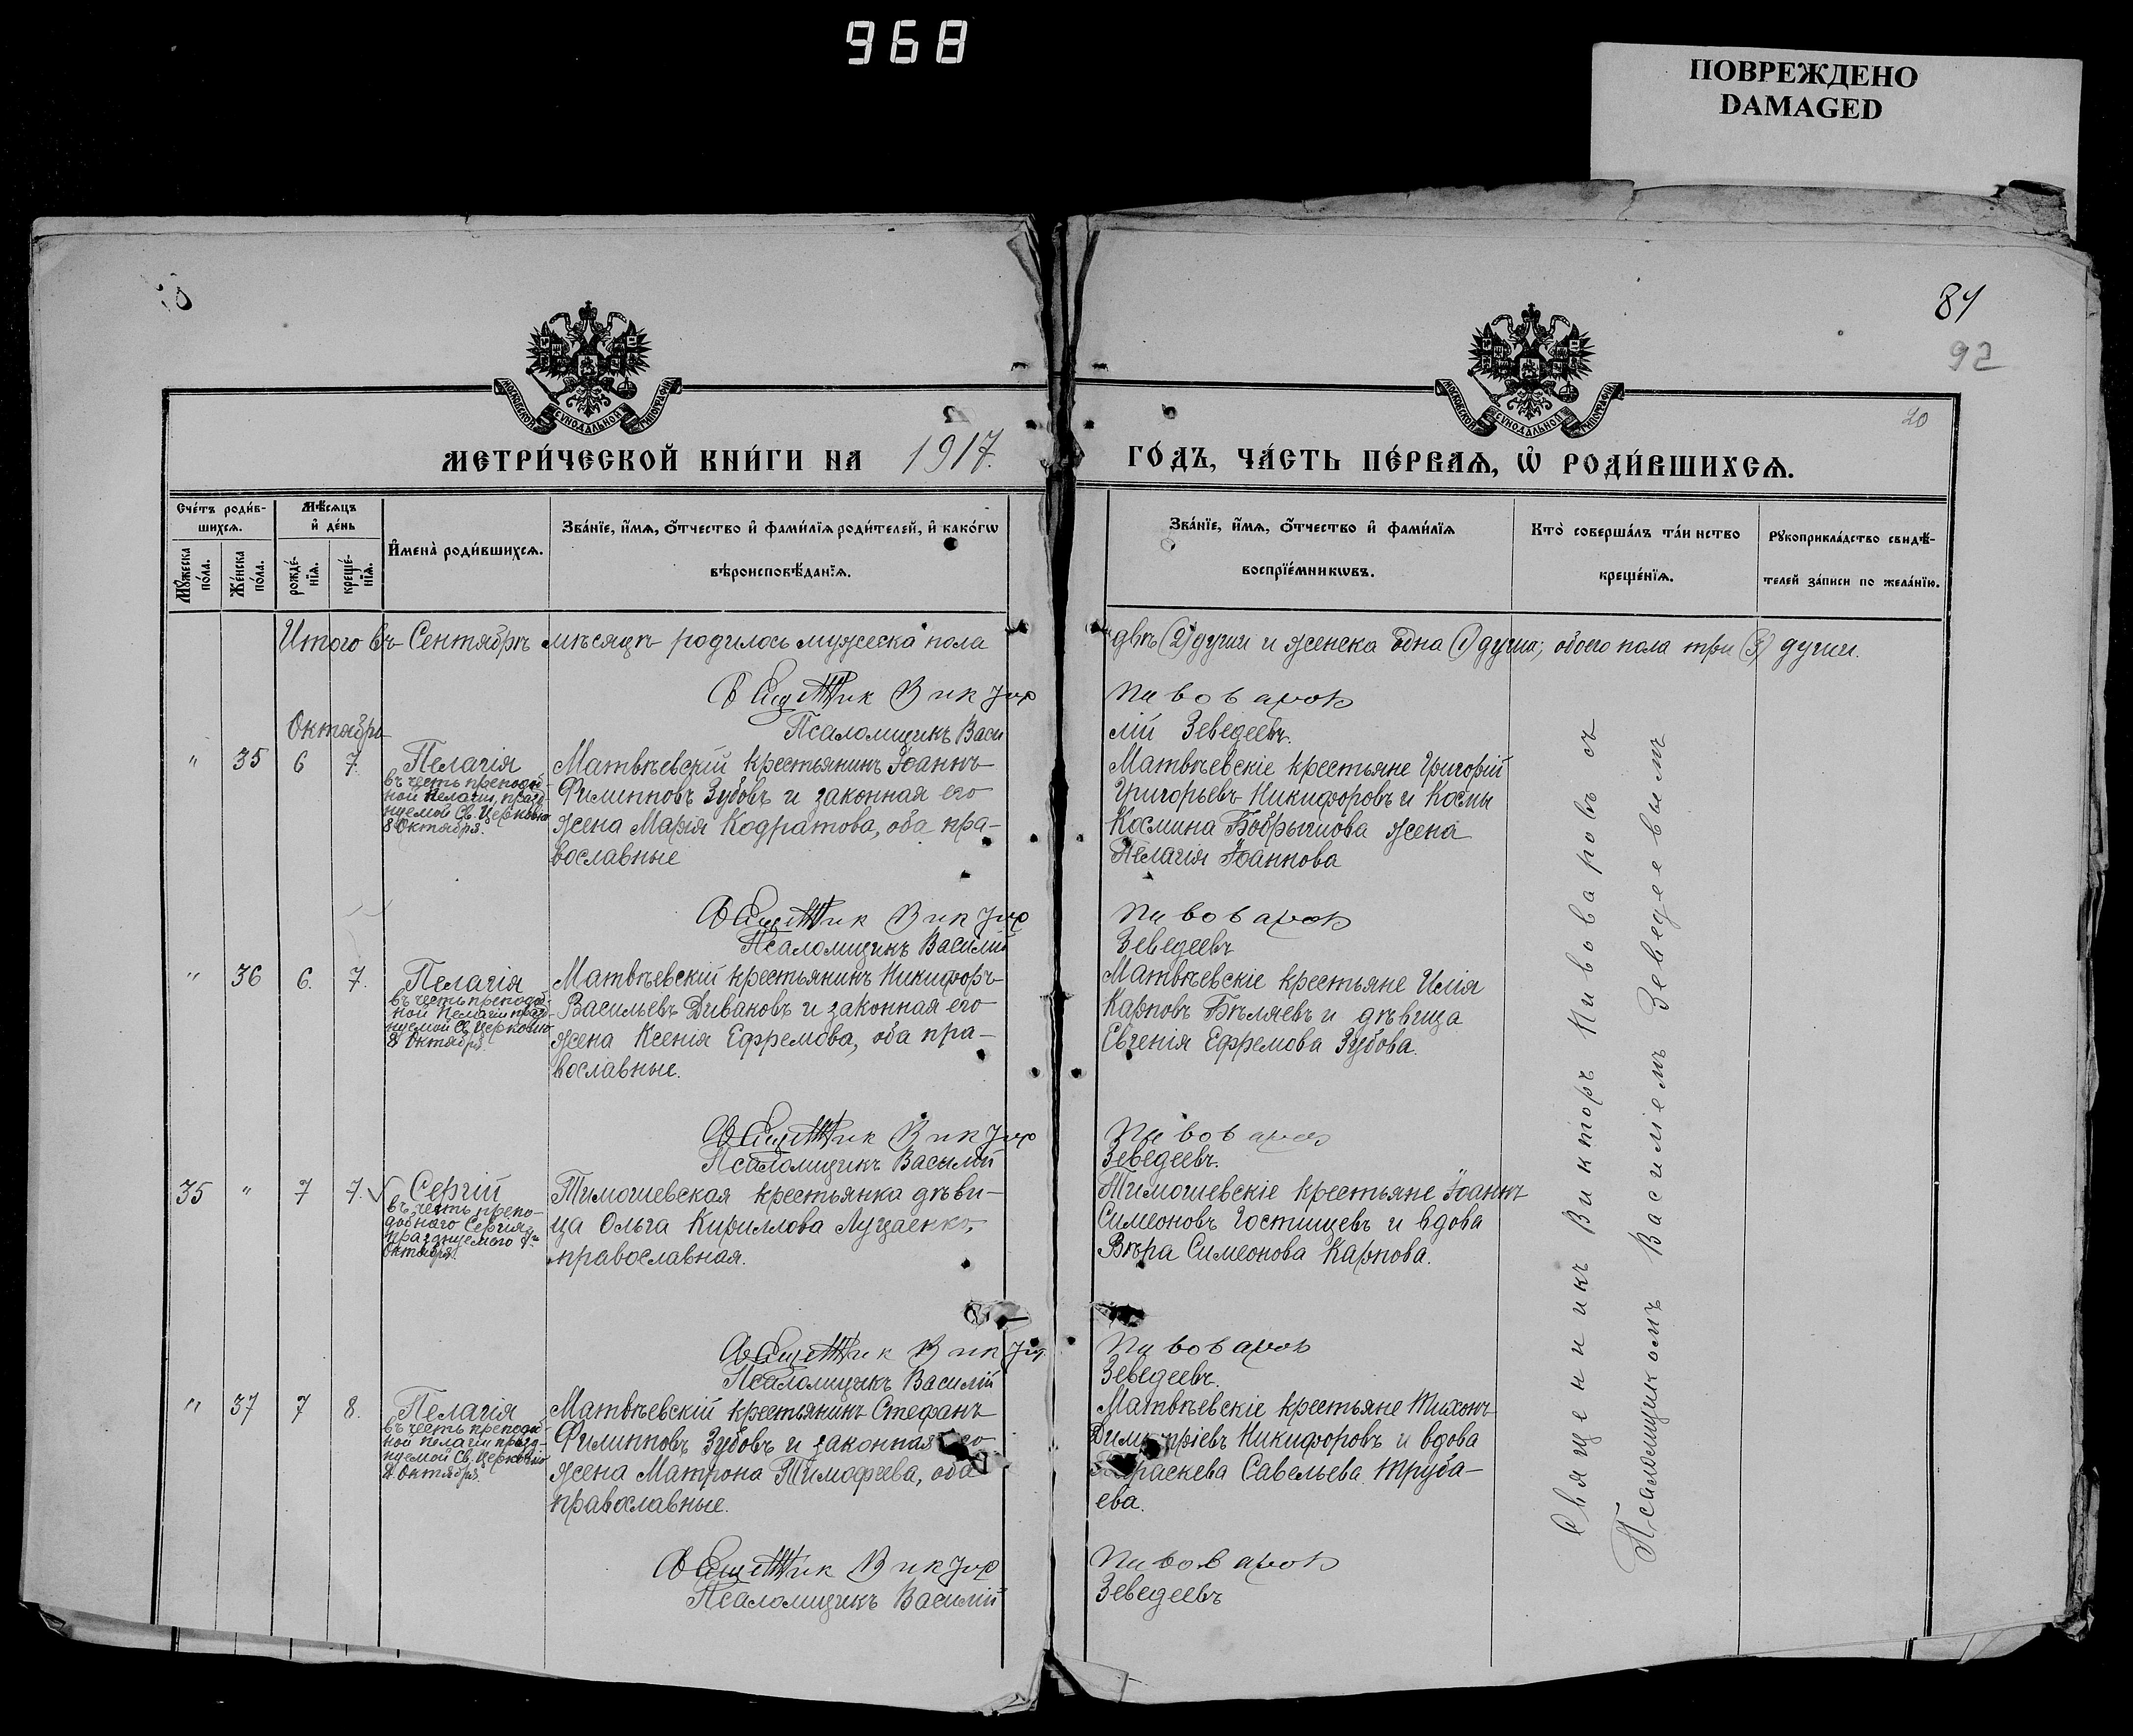 968
ПОВРЕЖДЕНО
DAMAGED
84
92
20
МОСКОВСКОЙ СѴНОДАЛЬНОЙ ТИПОГРАФІИ
МОСКОВСКОЙ СѴНОДАЛЬНОЙ ТИПОГРАФІИ
МЕТРИ́ЧЕСКОЙ КНИ́ГИ НА 1917. ГО́ДЪ, ЧА́СТЬ ПЕ́РВАѦ, Ѡ҆ РОДИ́ВШИХСѦ.
Сче́тъ роди́в-
шихсѧ.
Мѣ́сѧцъ
и҆ де́нь
Мꙋжеска по́ла.
Же́нска по́ла.
рожде́-нїѧ.
креще́-нїѧ.
И҆мена̀ роди́вшихсѧ.
Зва́нїе, и҆́мѧ, ѻ҆́тчество и҆ фами́лїѧ роди́телей, и҆ како́гѡ
вѣроисповѣ́данїѧ.
Зва́нїе, и҆́мѧ, ѻ҆́тчество и҆ фами́лїѧ
воспрїе́мникѡвъ.
Кто̀ соверша́лъ та́инство
креще́нїѧ.
Рꙋкоприкла́дство свидѣ́-
телей за́писи по жела́нїю.
Итого въ Сентябрѣ мѣсяцѣ родилось мужеска пола двѣ (2) души и женска одна (1) душа; обоего пола три (3) души.
Священник Виктор Пивоваров
Псаломщикъ Василій Зеведеевъ.
Октябрь
" 35 6 7.
Пелагія
въ честь преподоб-
ной Пелагіи, празд-
нуемой Св. Церковью
8 Октября.
Матвѣевскій крестьянинъ Іоаннъ
Филипповъ Зубовъ и законная его
жена Марія Кодратова, оба пра-
вославные
Матвѣевскіе крестьяне Григорій
Григорьевъ Никифоровъ и Космы
Космина Бобрышова жена
Пелагія Іоаннова
Священник Виктор Пивоваров
Псаломщикъ Василій Зеведеевъ
" 36 6. 7.
Пелагія
въ честь преподоб-
ной Пелагіи празд-
нуемой Св. Церковью
8 Октября.
Матвѣевскій крестьянинъ Никифоръ
Васильевъ Дивановъ и законная его
жена Ксенія Ефремова, оба пра-
вославные.
Матвѣевскіе крестьяне Илія
Карповъ Бѣляевъ и дѣвица
Евгенія Ефремова Зубова.
Священник Виктор Пивоваров
Псаломщикъ Василій Зеведеевъ.
35 " 7 7.
Сергій
въ честь препо-
добнаго Сергія,
празднуемого 7-го
Октября.
Тимошевская крестьянка дѣви-
ца Ольга Кириллова Луцаенко,
православная.
Тимошевскіе крестьяне Іоаннъ
Симеоновъ Гостищевъ и вдова
Вѣра Симеонова Карпова.
Священник Виктор Пивоваров
Псаломщикъ Василій Зеведеевъ.
" 37 7 8.
Пелагія
въ честь преподоб-
ной Пелагіи празд-
нуемой Св. Церковью
8 Октября.
Матвѣевскій крестьянинъ Стефанъ
Филипповъ Зубовъ и законная его
жена Матрона Тимофеева, оба
православные.
Матвѣевскіе крестьяне Тихонъ
Димитріевъ Никифоровъ и вдова
Параскева Савельева Труба-
ева.
Священник Виктор Пивоваров
Псаломщикъ Василій Зеведеевъ
Священникъ Викторъ Пивоваровъ съ
Псаломщикомъ Василіемъ Зеведеевымъ